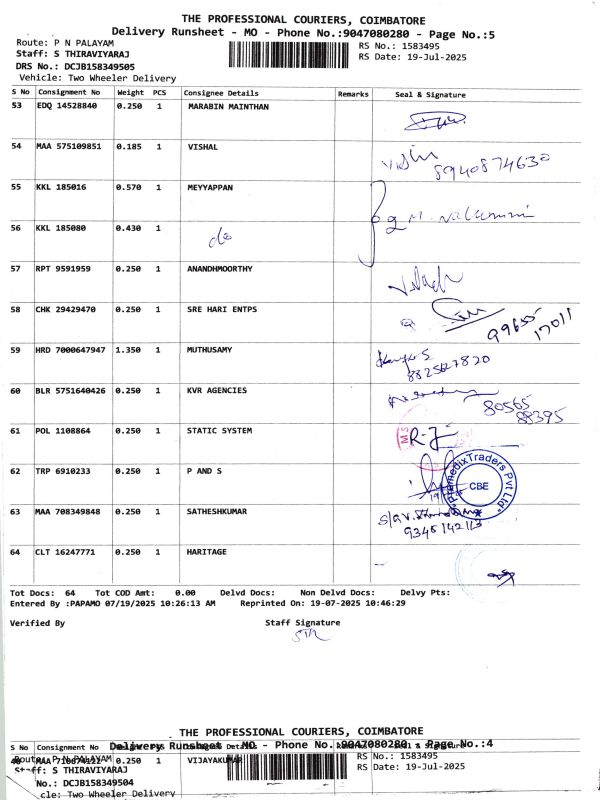 THE PROFESSIONAL COURIERS, COIMBATORE
Delivery Runsheet - MO - Phone No.:9047080280 - Page No.:5
Route: P N PALAYAM
RS No.: 1583495
Staff: S THIRAVIYARAJ
RS Date: 19-Jul-2025
DRS No.: DCJB158349505
Vehicle: Two Wheeler Delivery
S No Consignment No Weight PCS Consignee Details Remarks Seal & Signature
53 EDQ 14528840 0.250 1 MARABIN MAINTHAN
54 MAA 575109851 0.185 1 VISHAL
8940874630
55 KKL 185016 0.570 1 MEYYAPPAN
56 KKL 185080 0.430 1 do
57 RPT 9591959 0.250 1 ANANDHMOORTHY
58 CHK 29429470 0.250 1 SRE HARI ENTPS
99655
17011
59 HRD 7000647947 1.350 1 MUTHUSAMY
60 BLR 5751640426 0.250 1 KVR AGENCIES
80565
88395
61 POL 1108864 0.250 1 STATIC SYSTEM
62 TRP 6910233 0.250 1 P AND S
Traders Pvt Ltd
CBE
63 MAA 708349848 0.250 1 SATHESHKUMAR
64 CLT 16247771 0.250 1 HARITAGE
Tot Docs: 64 Tot COD Amt: 0.00 Delvd Docs: Non Delvd Docs: Delvy Pts:
Entered By :PAPAMO 07/19/2025 10:26:13 AM Reprinted On: 19-07-2025 10:46:29
Verified By Staff Signature
THE PROFESSIONAL COURIERS, COIMBATORE
Delivery Runsheet - MO - Phone No.:9047080280 - Page No.:4
S No Consignment No
Route: P N PALAYAM
RS No.: 1583495
0.250 1 VIJAYAKUMAR
S THIRAVIYARAJ
RS Date: 19-Jul-2025
No.: DCJB158349504
cle: Two Wheeler Delivery